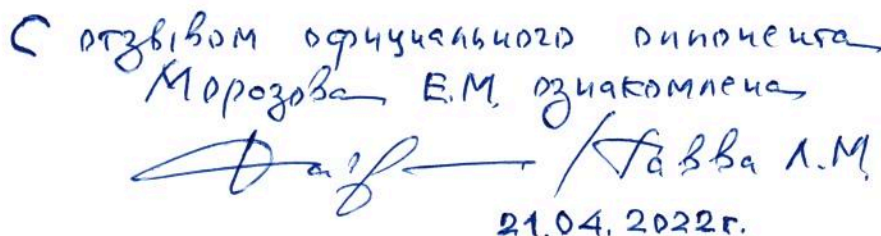 С отзывом официального оппонента
Морозова Е.М. ознакомлена
/Гавва Л.М.
21.04.2022г.